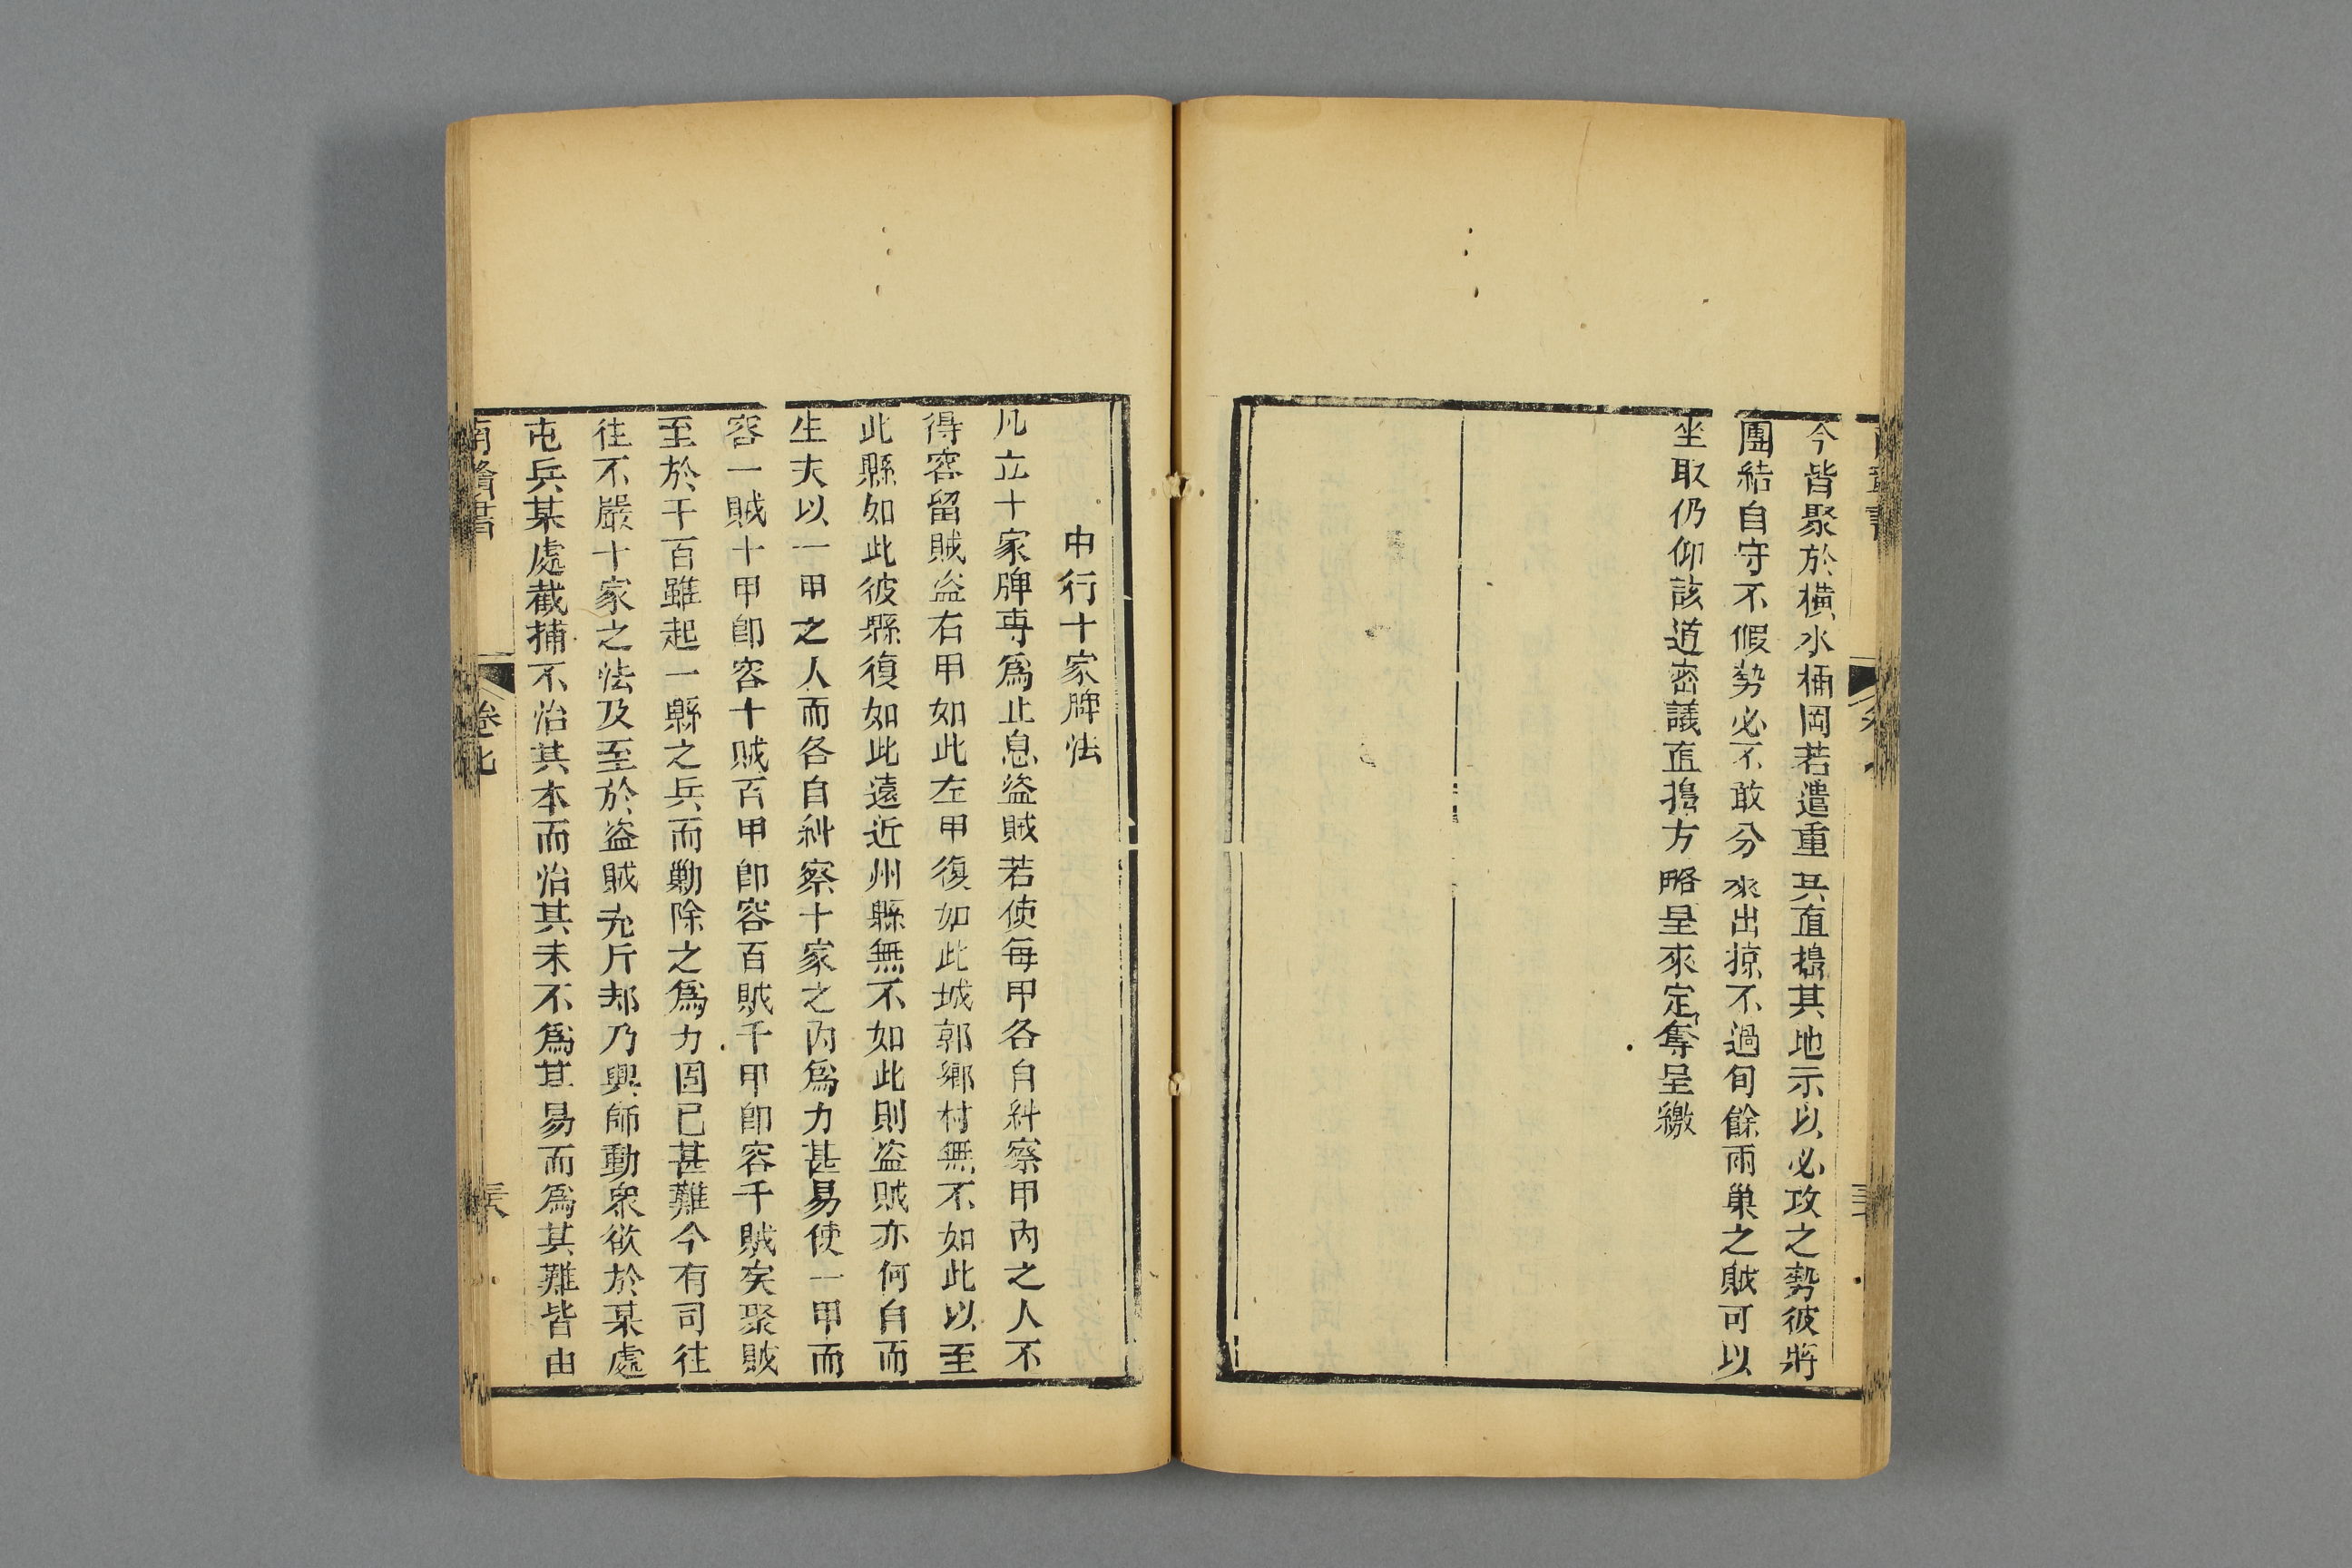 今皆聚於橫水桶岡若遣重兵直搗其地示以必攻之勢彼將
團結自守不假勢必不敢分來出掠不過旬餘兩巢之賊可以
坐取仍仰該道密議直搗方略呈來定奪呈繳
申行十家牌法
凡立十家牌專爲止息盜賊若使每甲各自糾察甲內之人不
得容留賊盜右甲如此左甲復如此城郭鄉村無不如此以至
此縣如此彼縣復如此遠近州縣無不如此則盜賊亦何自而
生夫以一甲之人而各自糾察十家之內爲力甚易使一甲而
容一賊十甲卽容十賊百甲卽容百賊千甲卽容千賊矣聚賊
至於千百雖起一縣之兵而勦除之爲力固已甚難今有司往
往不嚴十家之法及至於盜賊充斥却乃興師動衆欲於某處
屯兵某處截捕不治其本而治其末不爲其易而爲其難皆由
南贛書
卷七
三六